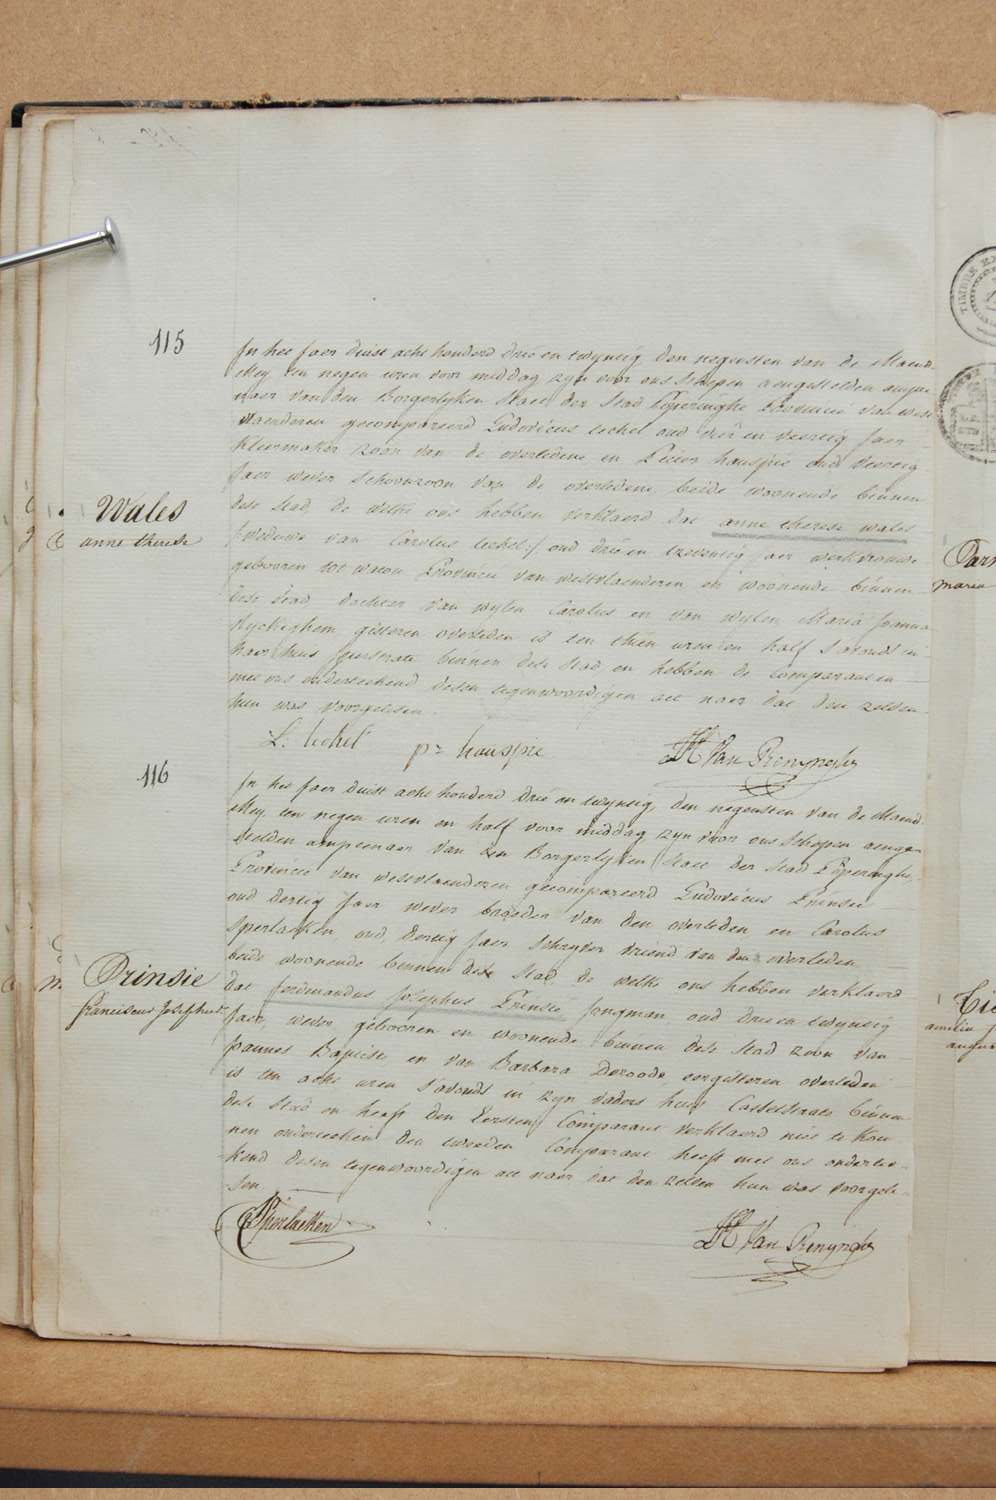 115
In het Jaer duist acht honderd drie en twyntig den negensten van de Maend
Mey ten negen uren voor middag zyn voor ons Schepen aengestelden ampte-
naer van den Borgerlyken Staet der Stad Poperinghe Provincie van West
vlaenderen gecompareerd Ludovicus Lechel oud drie en veertig Jaer
kleermaker zoon van de overledene en Pieter hauspie oud veertig
Jaer wever schoonzoon van de overledene beide woonende binnen
dese Stad, de welke ons hebben verklaerd dat anne therese wales
Wales
anne therese
weduwe van Carolus Lechel oud drie en tzeventig jaer werkvrouwe
gebooren tot watou Provincie van westvlaenderen en woonende binnen
dese Stad dochter van wylen Carolus en van wylen Maria Joanna
Ryckeghem, gisteren overleden is ten thien uren en half s'avonds in
haer huis binnen dese Stad, en hebben de Comparanten
met ons onderteekend desen tegenwoordigen act naer dat den zelden
hun was voorgelesen.
L. Lechel pr hauspie
116
In het Jaer duist acht honderd drie en twyntig, den negensten van de Maend
Mey ten negen uren en half voor middag zyn voor ons Schepen aenge-
stelden amptenaer van den Borgerlyken Staet der Stad Poperinghe,
Provincie van westvlaenderen gecompareerd Ludovicus Prinsie
oud dertig Jaer wever broeder van den overleden en Carolus
Sperlaeken, oud dertig Jaer Schryver vriend van den overleden
beide woonende binnen dese Stad, de welke ons hebben verklaerd
Prinsie
franciscus Josephus
dat ferdinandus Josephus Prinsie Jongman, oud drie en twyntig
Jaer, wever, gebooren en woonende binnen dese Stad zoon van
Joannes Baptiste en van Barbara Deroode, eergisteren overleden
is ten acht uren s'avonds in zyn vaders huis Casselstraete binnen
dese Stad en heeft den Eersten Comparant verklaerd niet te kon-
nen onderteeken den tweeden Comparant heeft met ons ondertee-
kend desen tegenwoordigen act naer dat den zelden hun was voorgele-
sen
Sperlaeken